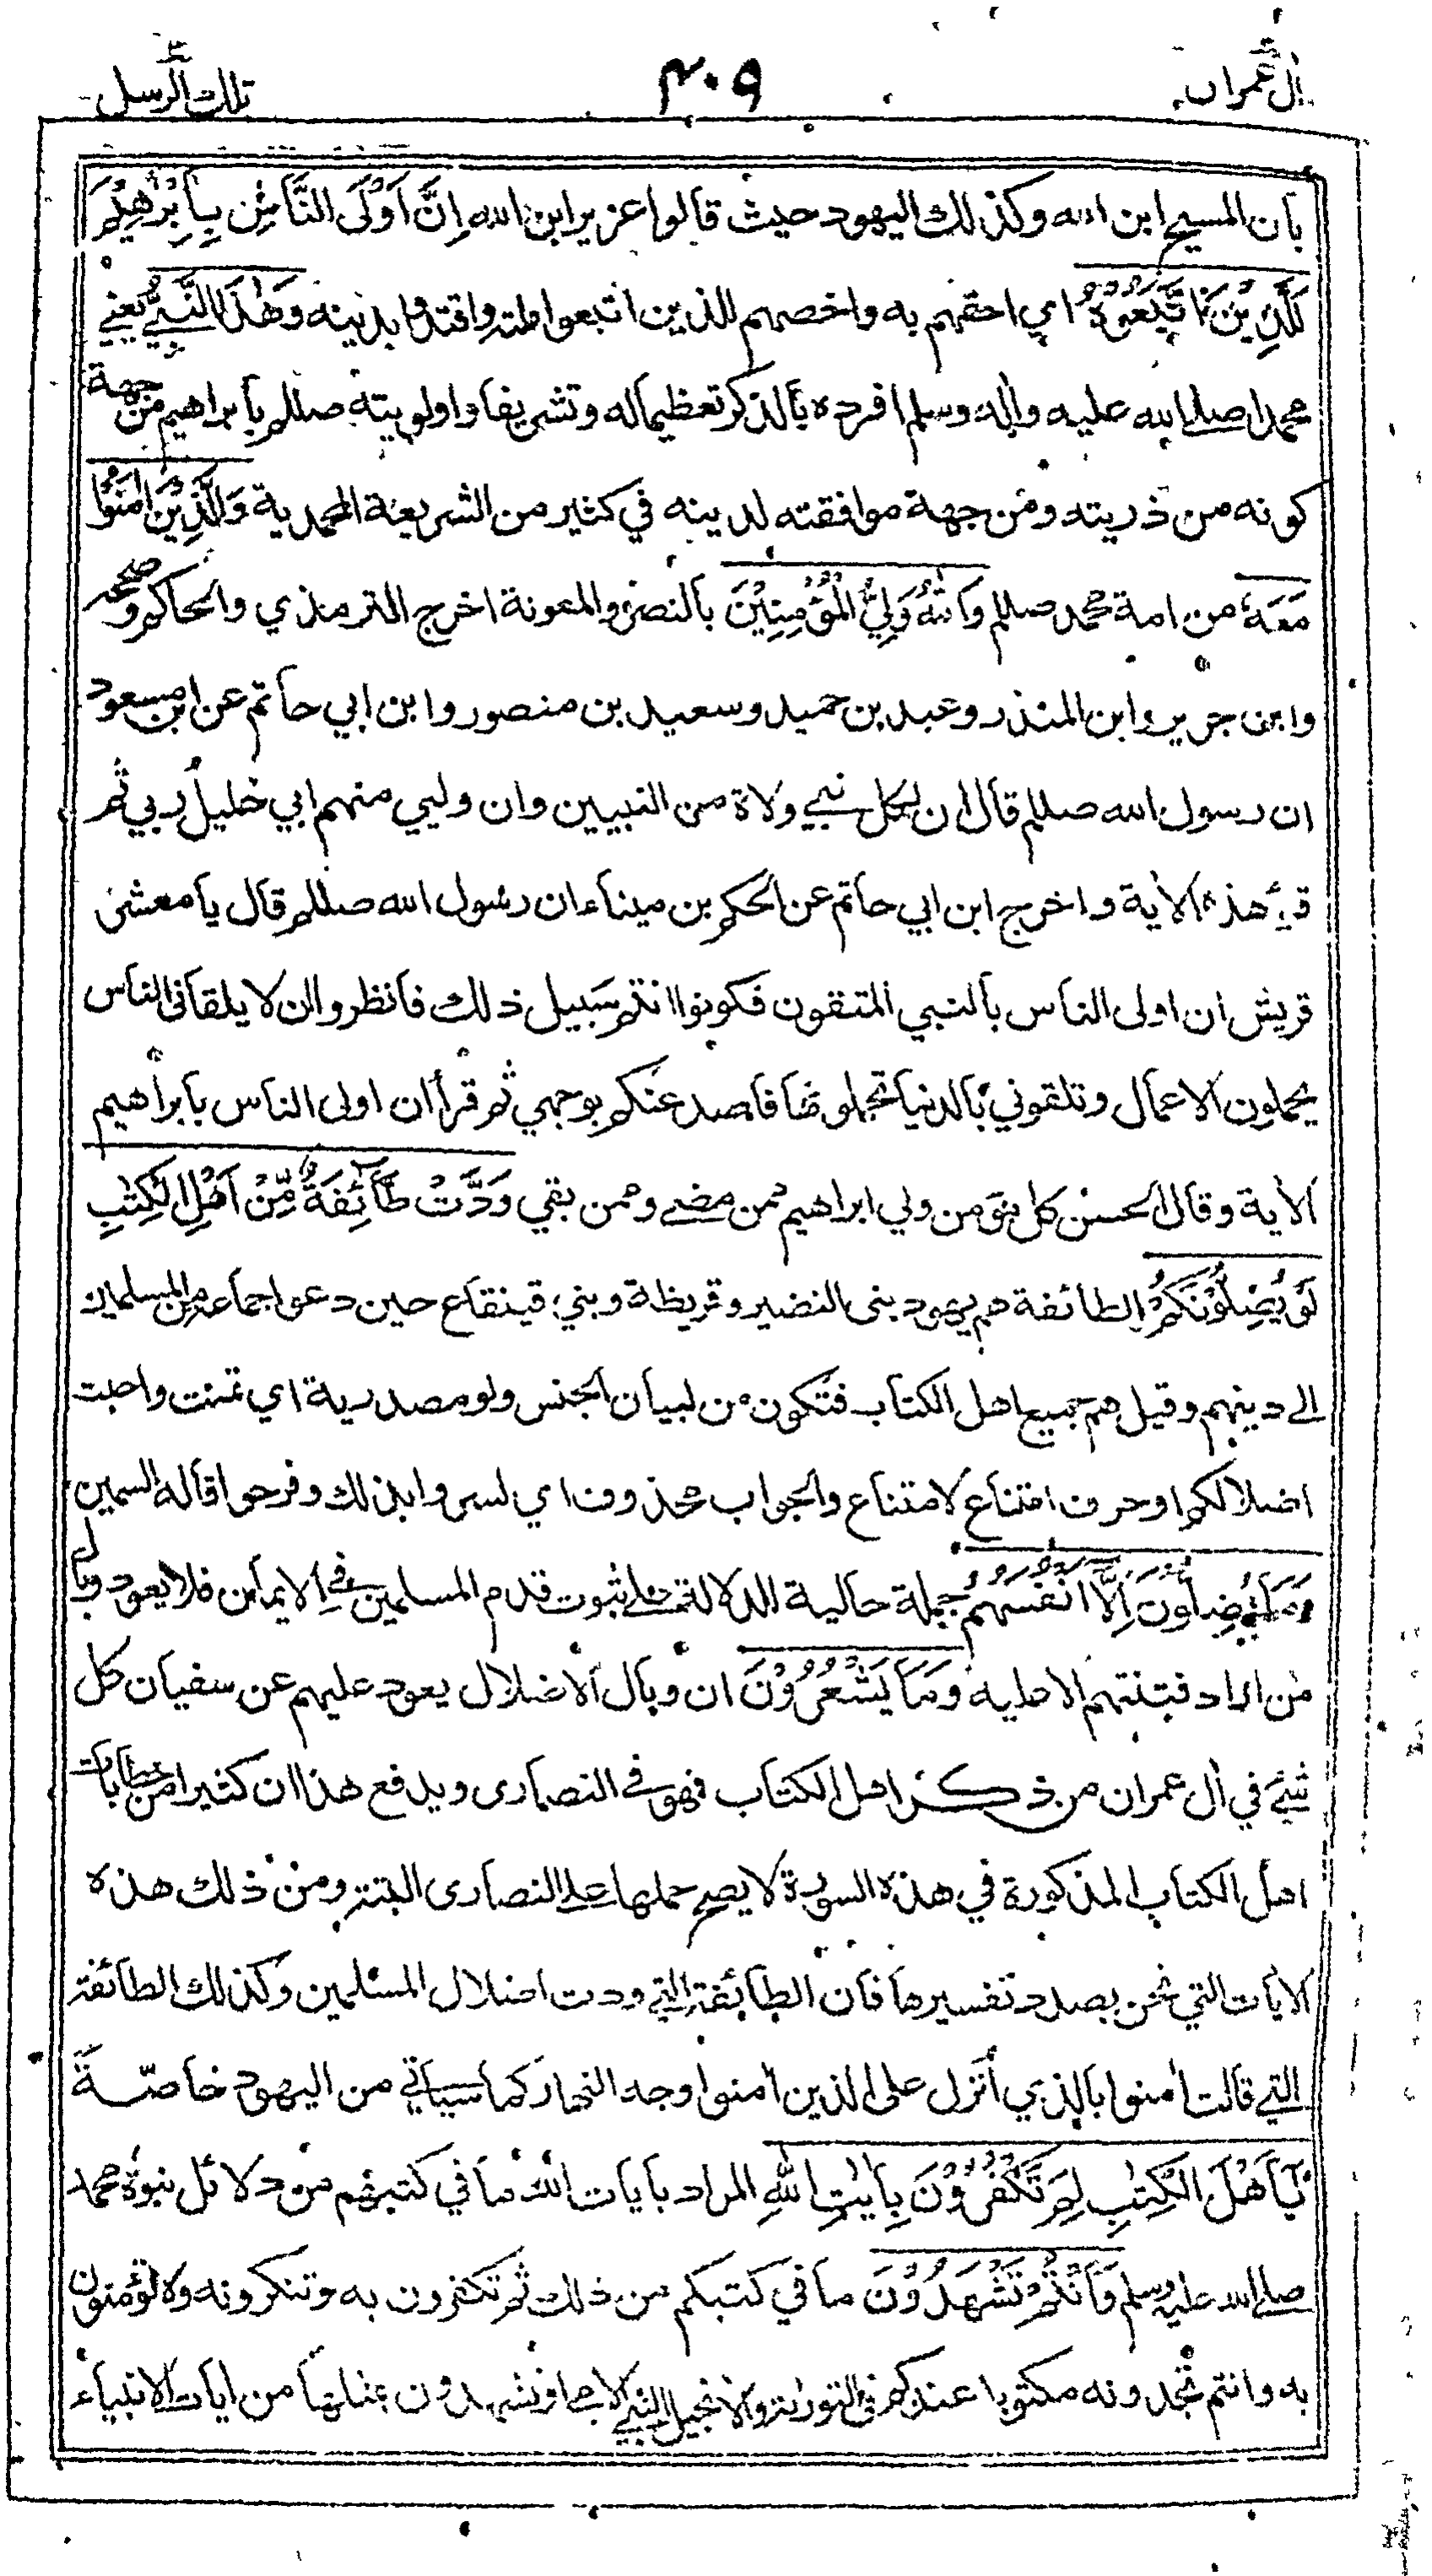 اٰل عمران
٤٠٩
تلك الرسل
بأن المسيح ابن الله وكذلك اليهود حيث قالوا عزير ابن الله اِنَّ اَوْلَى النَّاسِ بِاِبْرٰهِيْمَ
لَلَّذِيْنَ اتَّبَعُوْهُ اي احقهم به واخصهم للذين اتبعوا ملته واقتدوا بدينه وَهٰذَا النَّبِيُّ يعني
محمدا صلى الله عليه واٰله وسلم افرده بالذكر تعظيما له وتشريفا واولويته صللم بابراهيم من جهة
كونه من ذريته ومن جهة موافقته لدينه في كثير من الشريعة المحمدية وَالَّذِيْنَ اٰمَنُوْا
مَعَهٗ من امة محمد صللم وَاللّٰهُ وَلِيُّ الْمُؤْمِنِيْنَ بالنصر والمعونة اخرج الترمذي والحاكم وصححه
وابن جرير وابن المنذر وعبد بن حميد وسعيد بن منصور وابن ابي حاتم عن ابن مسعود
ان رسول الله صللم قال ان لكل نبي ولاة من النبيين وان وليي منهم ابي خليل ربي ثم
قرأ هذه الاٰية واخرج ابن ابي حاتم عن الحكم بن ميناء ان رسول الله صللم قال يا معشر
قريش ان اولى الناس بالنبي المتقون فكونوا انتم سبيل ذلك فانظروا ان لا يلقاني الناس
يحملون الاعمال وتلقوني بالدنيا تحملونها فاصد عنكم بوجهي ثم قرأ ان اولى الناس بابراهيم
الاٰية وقال الحسن كل مؤمن ولي ابراهيم ممن مضى وممن بقي وَدَّتْ طَّآئِفَةٌ مِّنْ اَهْلِ الْكِتٰبِ
لَوْ يُضِلُّوْنَكُمْ الطائفة هم يهود بني النضير وقريظة وبني قينقاع حين دعوا جماعة من المسلمين
الى دينهم وقيل هم جميع اهل الكتاب فتكون من لبيان الجنس ولو مصدرية اي تمنت واحبت
اضلالكم او حرف امتناع لامتناع والجواب محذوف اي لسروا بذلك وفرحوا قاله السمين
وَمَا يُضِلُّوْنَ اِلَّا اَنْفُسَهُمْ جملة حالية للدلالة على ثبوت قدم المسلمين في الايمان فلا يعود وبال
من اراد فتنتهم الا عليه وَمَا يَشْعُرُوْنَ ان وبال الاضلال يعود عليهم عن سفيان كل
شيء في اٰل عمران من ذكر اهل الكتاب فهو في النصارى ويدفع هذا ان كثيرا من خطابات
اهل الكتاب المذكورة في هذه السورة لا يصح حملها على النصارى البتة ومن ذلك هذه
الاٰيات التي نحن بصدد تفسيرها فان الطائفة التي ودت اضلال المسلمين وكذلك الطائفة
التي قالت اٰمنوا بالذي أنزل على الذين اٰمنوا وجه النهار كما سيأتي من اليهود خاصّة
يٰٓاَهْلَ الْكِتٰبِ لِمَ تَكْفُرُوْنَ بِاٰيٰتِ اللّٰهِ المراد باٰيات الله ما في كتبهم من دلائل نبوة محمد
صلى الله عليه وسلم وَاَنْتُمْ تَشْهَدُوْنَ ما في كتبكم من ذلك ثم تكفرون به وتنكرونه ولا تؤمنون
به وانتم تجدونه مكتوبا عندكم في التورٰىة والانجيل النبي الامي او تشهدون بمثلها من اٰيات الانبياء